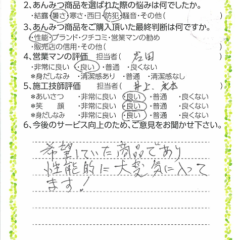 2.あんみつ商品を選ばれた際の悩みは何でしたか。
・結露・寒さ・寒・西日・防犯・騒音・その他( )
3.あんみつ商品をご購入頂いた最終判断は何ですか。
・性能・ブランド・クチコミ・営業マンの勧め
・販売店の信用・その他( )
4.営業マンの評価 担当者( 左田 )
・非常に良い・良い・普通・良くない
*身だしなみ ・清潔感あり ・普通 ・清潔感なし
5.施工技師評価 担当者( 井上、 )
*あいさつ ・非常に良い ・良い ・普通 ・良くない
*笑 顔 ・非常に良い ・良い ・普通 ・良くない
*身だしなみ ・非常に良い ・良い ・普通 ・良くない
6.今後のサービス向上のため、ご意見をお聞かせ下さい。
希望していた商品であり
性能的に大変気に入って
ます。